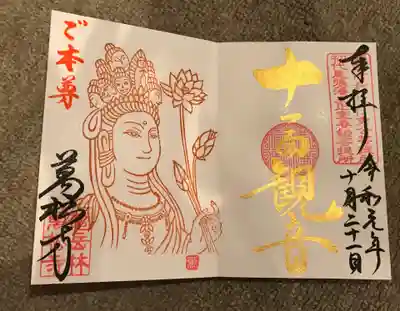 奉拝
令和元年
十月二十一日
十一面観音
ご本尊
萬松寺